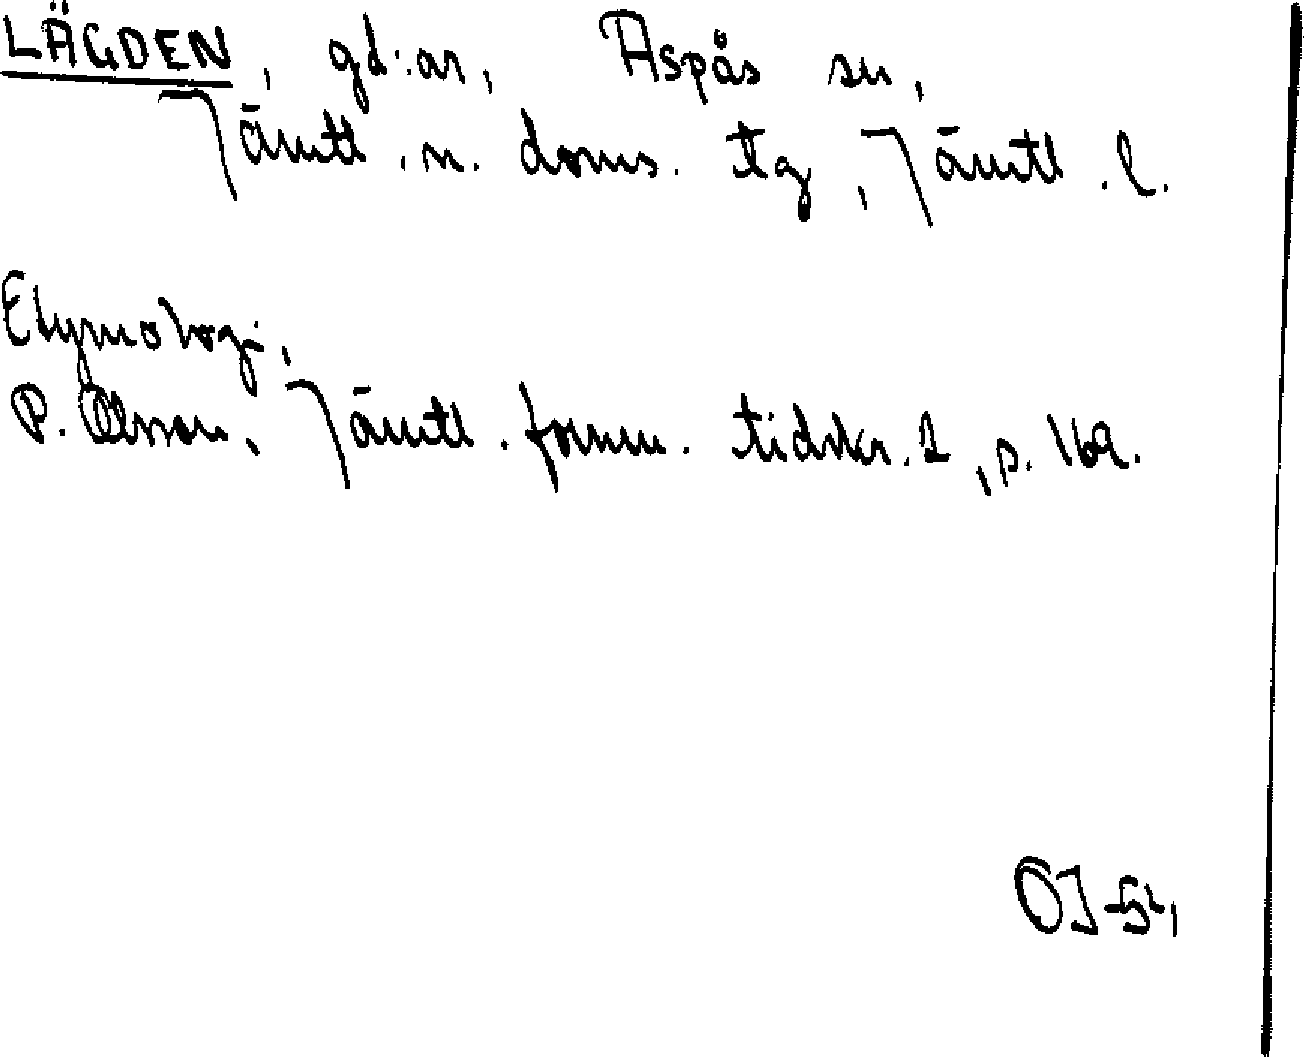 LÄGDEN, gd:ar, Aspås sn,
Jämtl. n. doms. tg, Jämtl. l.
Etymologi,
P. Olsson, Jämtl. fornm. tidskr. 2, p. 169.
OJ-52,